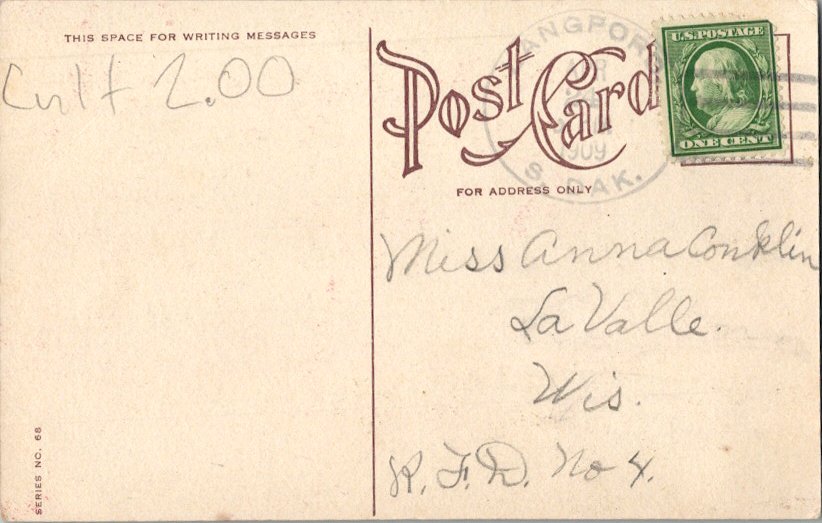 THIS SPACE FOR WRITING MESSAGES
Cult 2.00
Post Card
FOR ADDRESS ONLY
LANGFORD
APR
1909
S. DAK.
U.S. POSTAGE
ONE CENT
Miss Anna Conklin
La Valle.
Wis.
R. F. D. No 4.
SERIES NO. 68